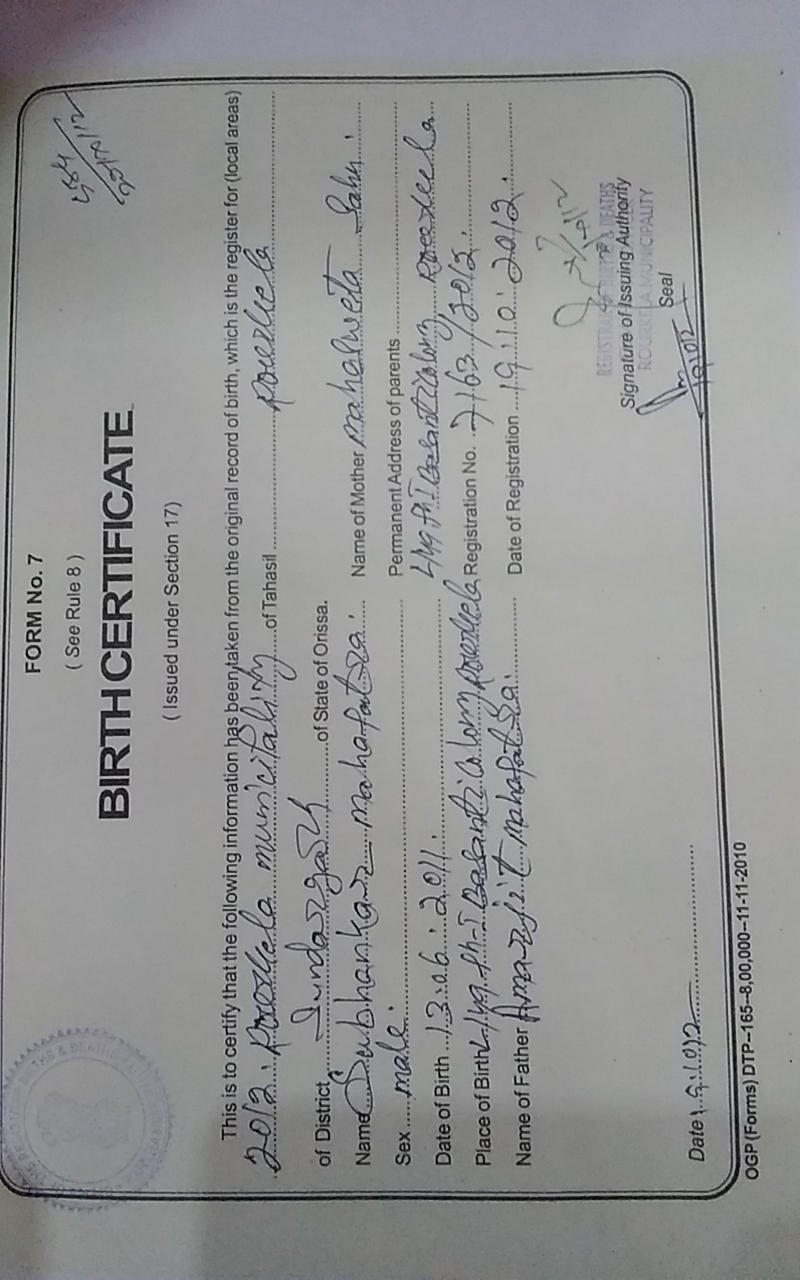 FORM No. 7
( See Rule 8 )
BIRTH CERTIFICATE
( Issued under Section 17)
This is to certify that the following information has been taken from the original record of birth, which is the register for (local areas)
2012. Rourkela municipality of Tahasil Rourkela
of District Sundargarh of State of Orissa.
Name Subhankar mahapatra. Name of Mother mahasweta Sahu.
Sex male. Permanent Address of parents
Date of Birth 13.06.2011. Basanti Colony Rourkela
Place of Birth Basanti Colony Rourkela Registration No. 7163/2012.
Name of Father Amarjit mahapatra. Date of Registration 19.10.2012.
REGISTRAR OF BIRTHS & DEATHS
Signature of Issuing Authority
ROURKELA MUNICIPALITY
Seal
Date
OGP (Forms) DTP–165–8,00,000–11-11-2010